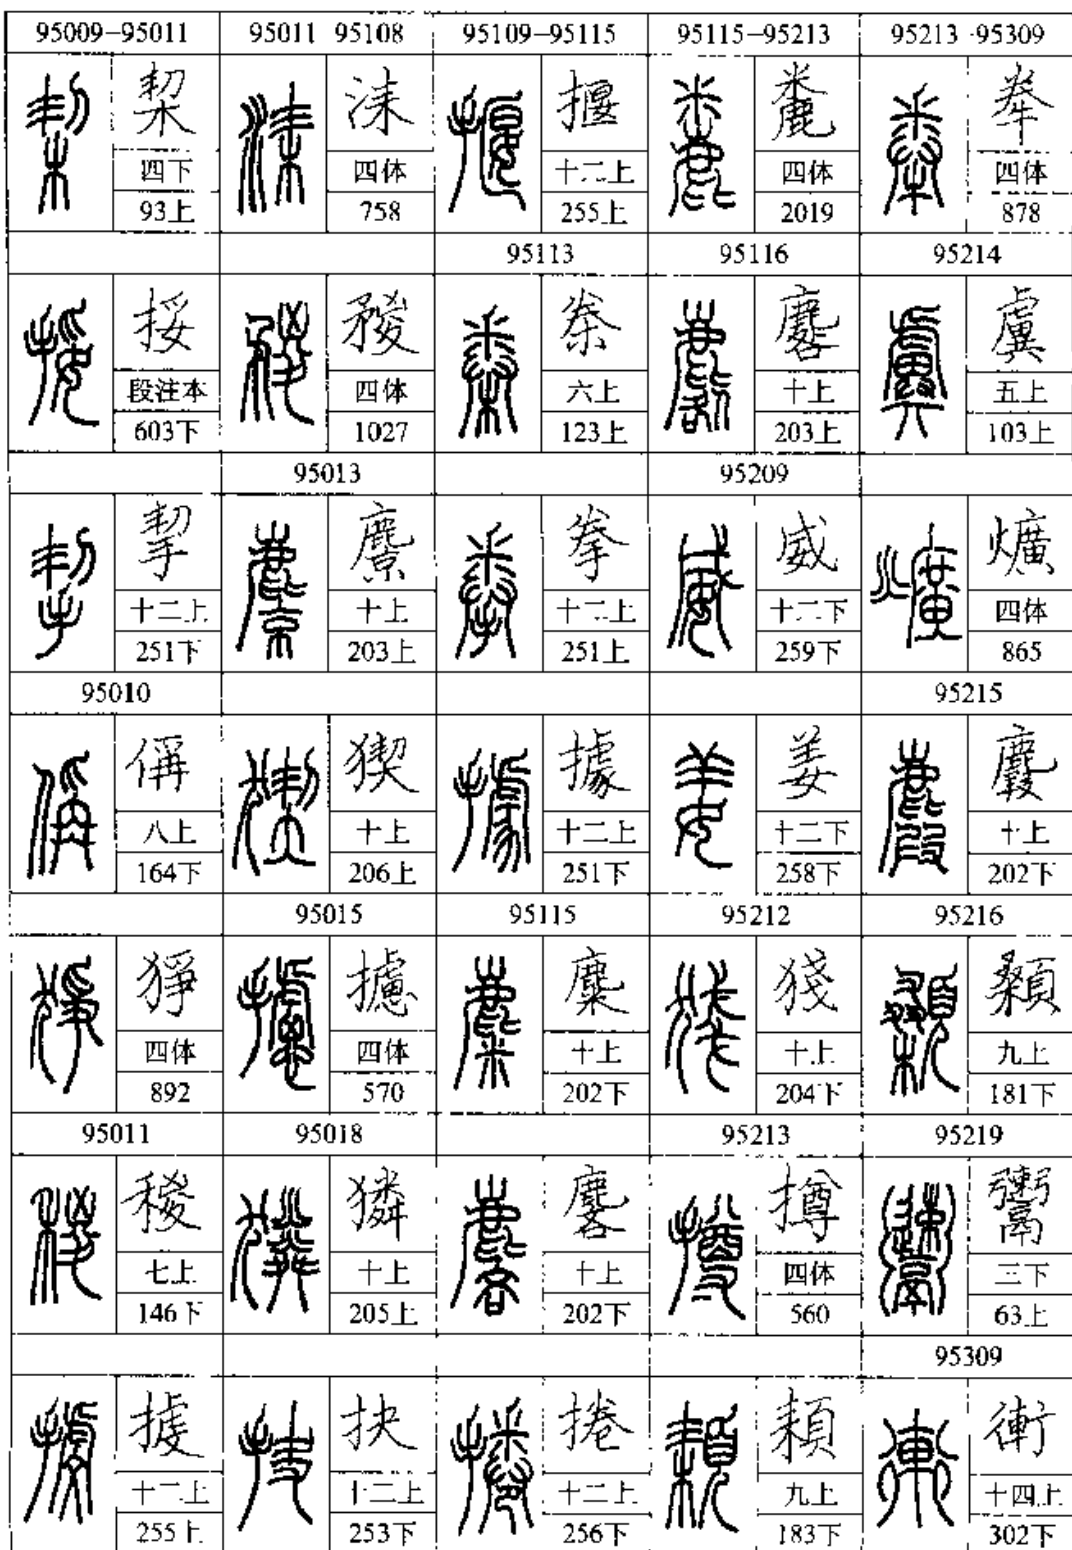 95009–95011
栔
四下
93上
挼
段注本
603下
挈
十二上
251下
95010
偁
八上
164下
猙
四体
892
95011
稯
七上
146下
十二上
255上
95011 95108
四体
758
四体
1027
95013
麖
十上
203上
猰
十上
206上
95015
攄
四体
570
95018
獜
十上
205上
抉
十二上
253下
95109–95115
揠
十二上
255上
95113
桊
六上
123上
拳
十二上
251上
據
十二上
251下
95115
麋
十上
202下
麐
十上
202下
捲
十二上
256下
95115–95213
四体
2019
95116
麔
十上
203上
95209
威
十二下
259下
姜
十二下
258下
95212
十上
204下
95213
撙
四体
560
頛
九上
183下
95213 95309
四体
878
95214
五上
103上
爌
四体
865
95215
麚
十上
202下
95216
顙
九上
181下
95219
三下
63上
95309
十四上
302下